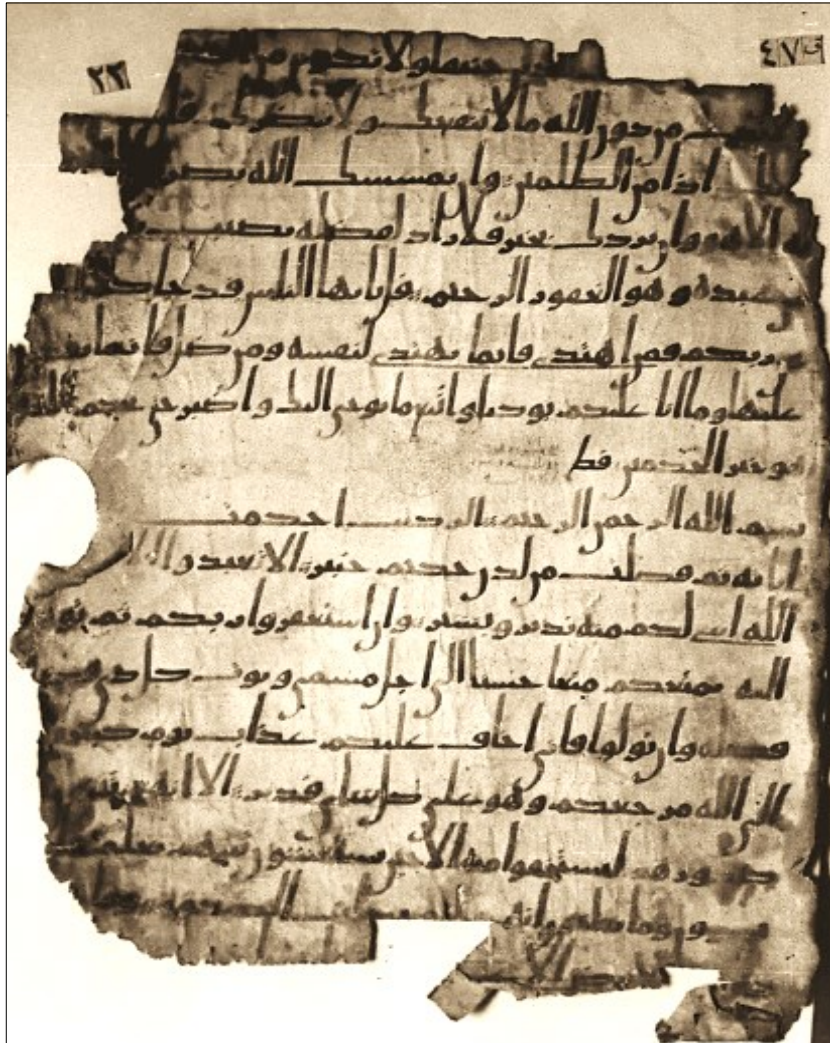 ٢٢
٤٧
حنيفا ولا تكونن من
من دون الله ما لا ينفعك ولا يضرك
اذا من الظلمين وان يمسسك الله بضر
الا هو وان يردك بخير فلا راد لفضله يصيب
عبده وهو الغفور الرحيم قل يايها الناس قد جاكم
ربكم فمن اهتدى فانما يهتدي لنفسه ومن ضل فانما يضل
عليها وما انا عليكم بوكيل واتبع ما يوحى اليك واصبر حتى يحكم الله
هو خير الحكمين
بسم الله الرحمن الرحيم الر كتب احكمت
ايته ثم فصلت من لدن حكيم خبير الا تعبدوا الا
الله انني لكم منه نذير وبشير وان استغفروا ربكم ثم توبوا
اليه يمتعكم متعا حسنا الى اجل مسمى ويوت كل ذي فضل
فضله وان تولوا فاني اخاف عليكم عذاب يوم كبير
الى الله مرجعكم وهو على كل شاي قدير الا انهم يثنون
صدورهم ليستخفوا منه الا حين يستغشون ثيبهم يعلم
يسرون وما يعلنون انه بذات الصدور وما
الارض الا